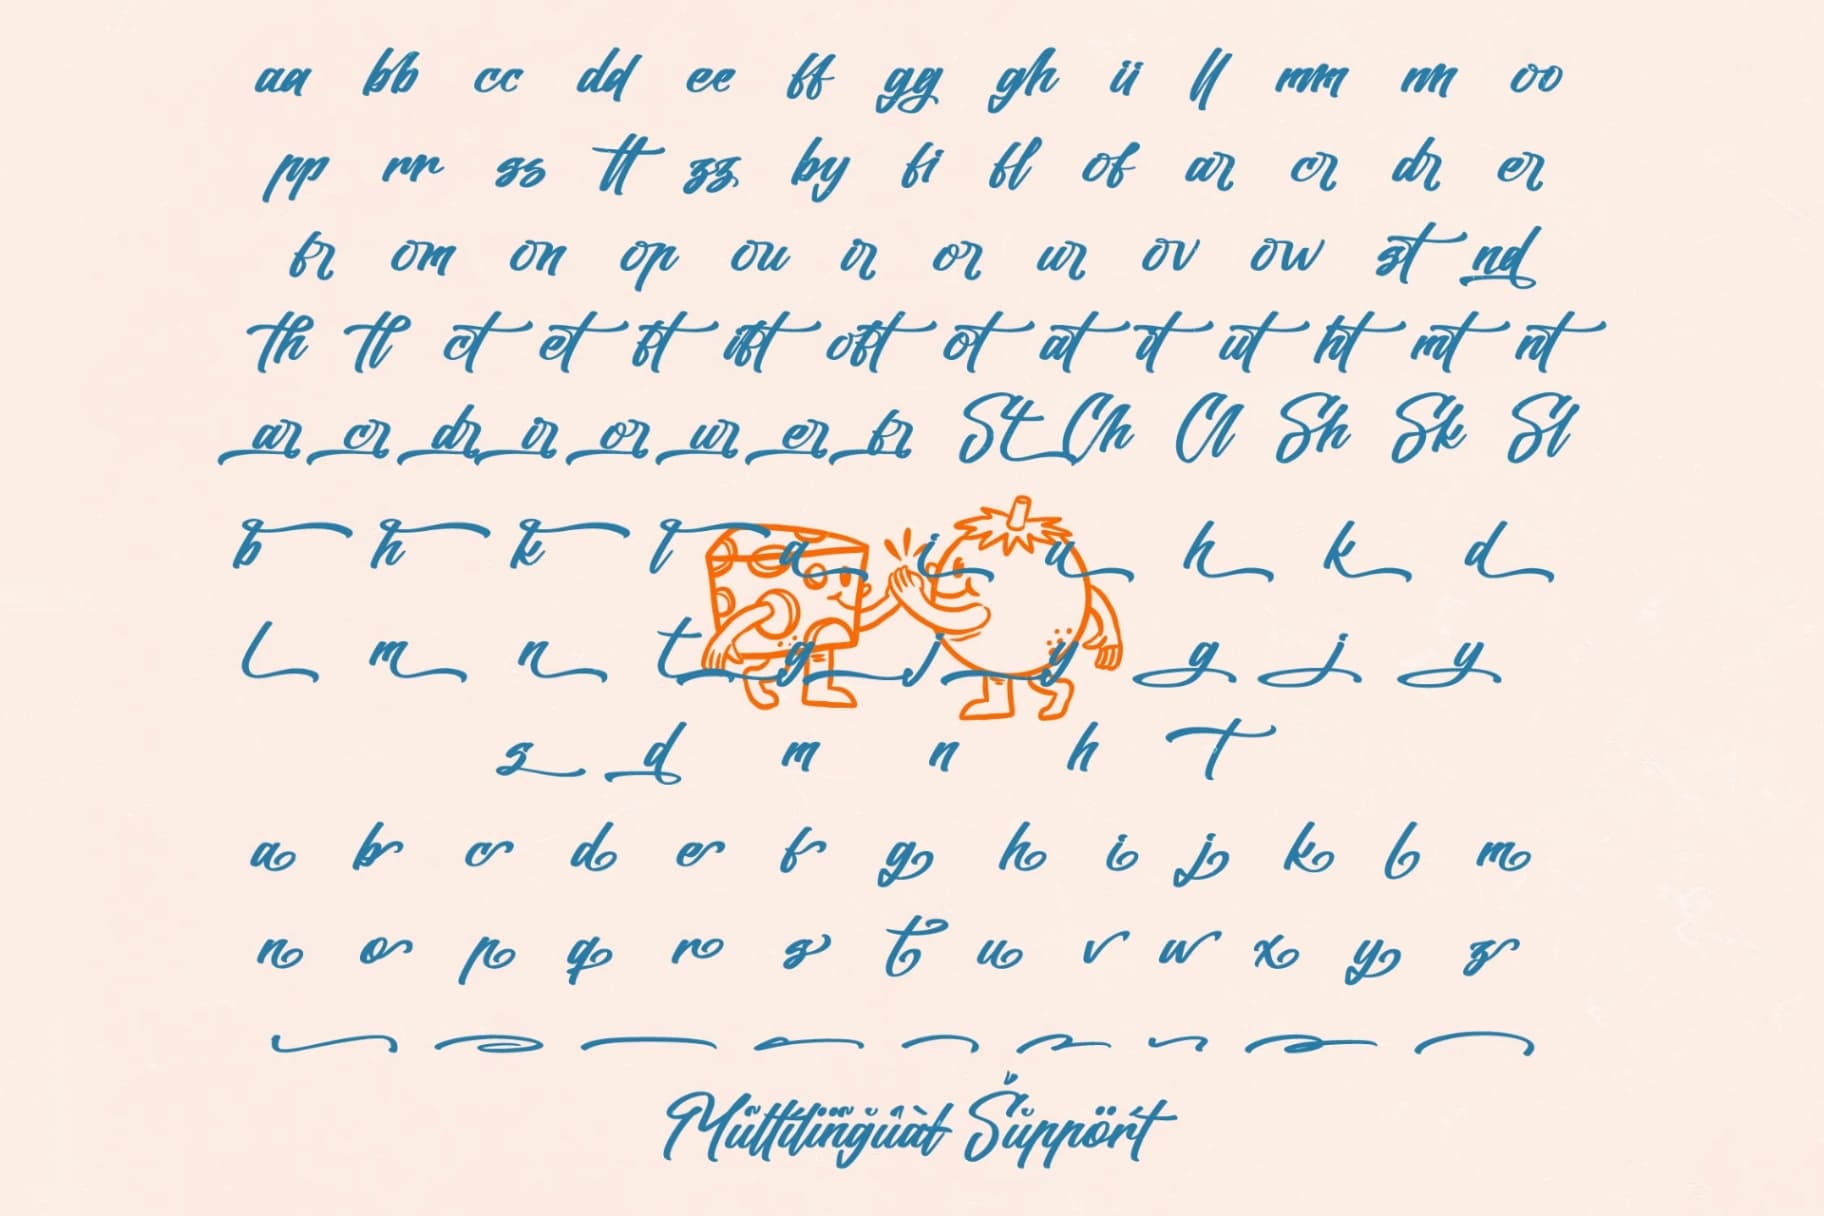 aa bb cc dd ee ff gg gh ii ll mm nn oo
pp rr ss tt zz by fi fl of ar cr dr er
fr om on op ou ir or ur ov ow st nd
th tl ct et ft ift oft ot at it ut ht mt nt
ar cr dr ir or ur er fr St Ch Cl Sh Sk Sl
b h k l a i u h k d
l m n t g j y g j y
s d m n h T
a b c d e f g h i j k l m
n o p q r s t u v w x y z